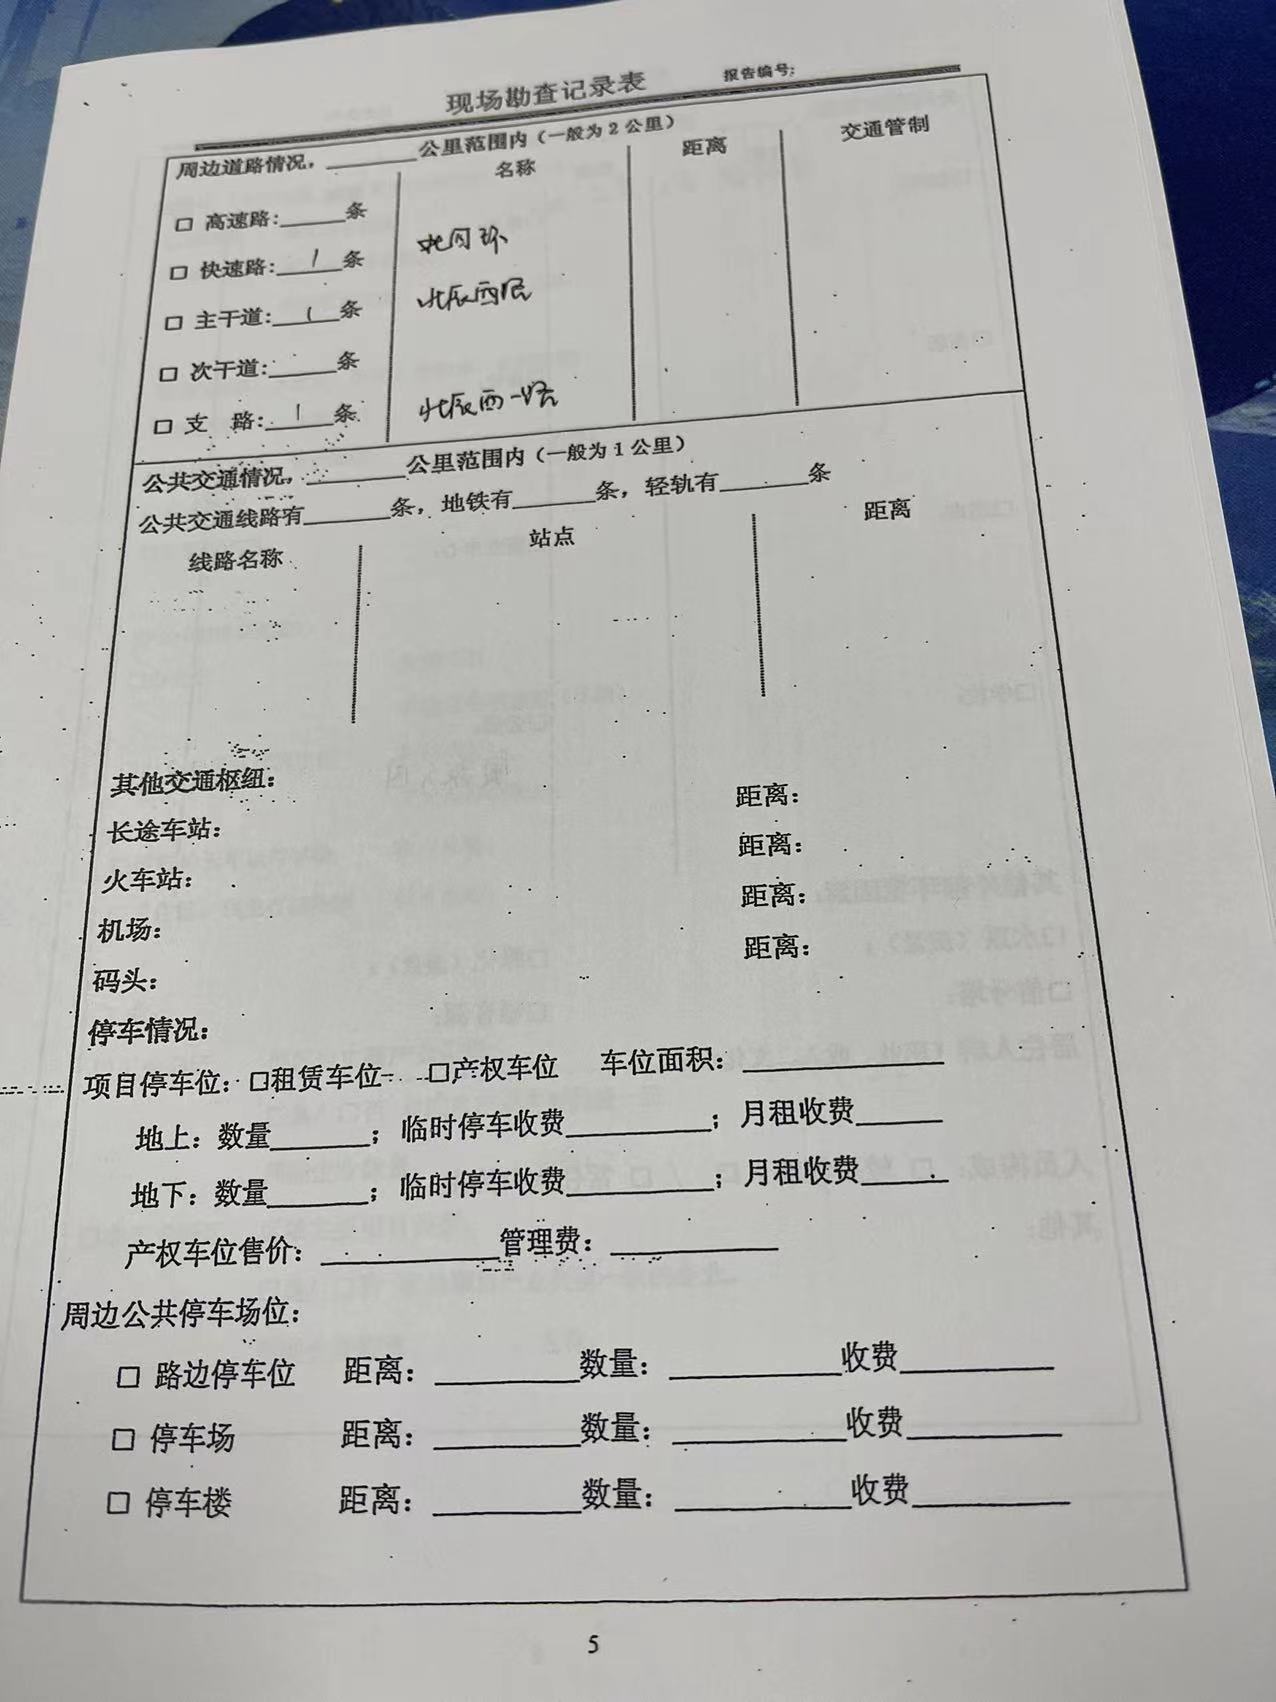 现场勘查记录表 报告编号:
周边道路情况，______公里范围内（一般为2公里） 名称 距离 交通管制
□ 高速路:____条
□ 快速路: 1 条 北四环
□ 主干道: 1 条 北辰西路
□ 次干道:____条
□ 支 路: 1 条 北辰西一路
公共交通情况，______公里范围内（一般为1公里）
公共交通线路有______条，地铁有______条，轻轨有______条
线路名称 站点 距离
其他交通枢纽：
长途车站： 距离：
火车站： 距离：
机场： 距离：
码头： 距离：
停车情况：
项目停车位：□租赁车位 □产权车位 车位面积：______
地上：数量______；临时停车收费______；月租收费______
地下：数量______；临时停车收费______；月租收费______
产权车位售价：______管理费：______
周边公共停车场位：
□ 路边停车位 距离：______数量：______收费______
□ 停车场 距离：______数量：______收费______
□ 停车楼 距离：______数量：______收费______
5